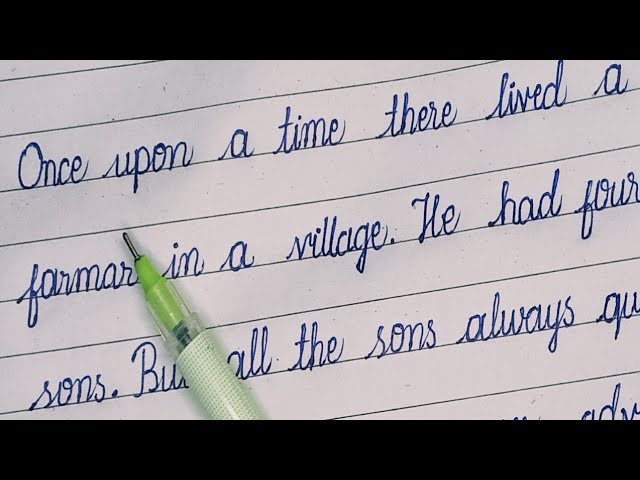 Once upon a time there lived a
farmar in a village. He had four
sons. But all the sons always qu
adv